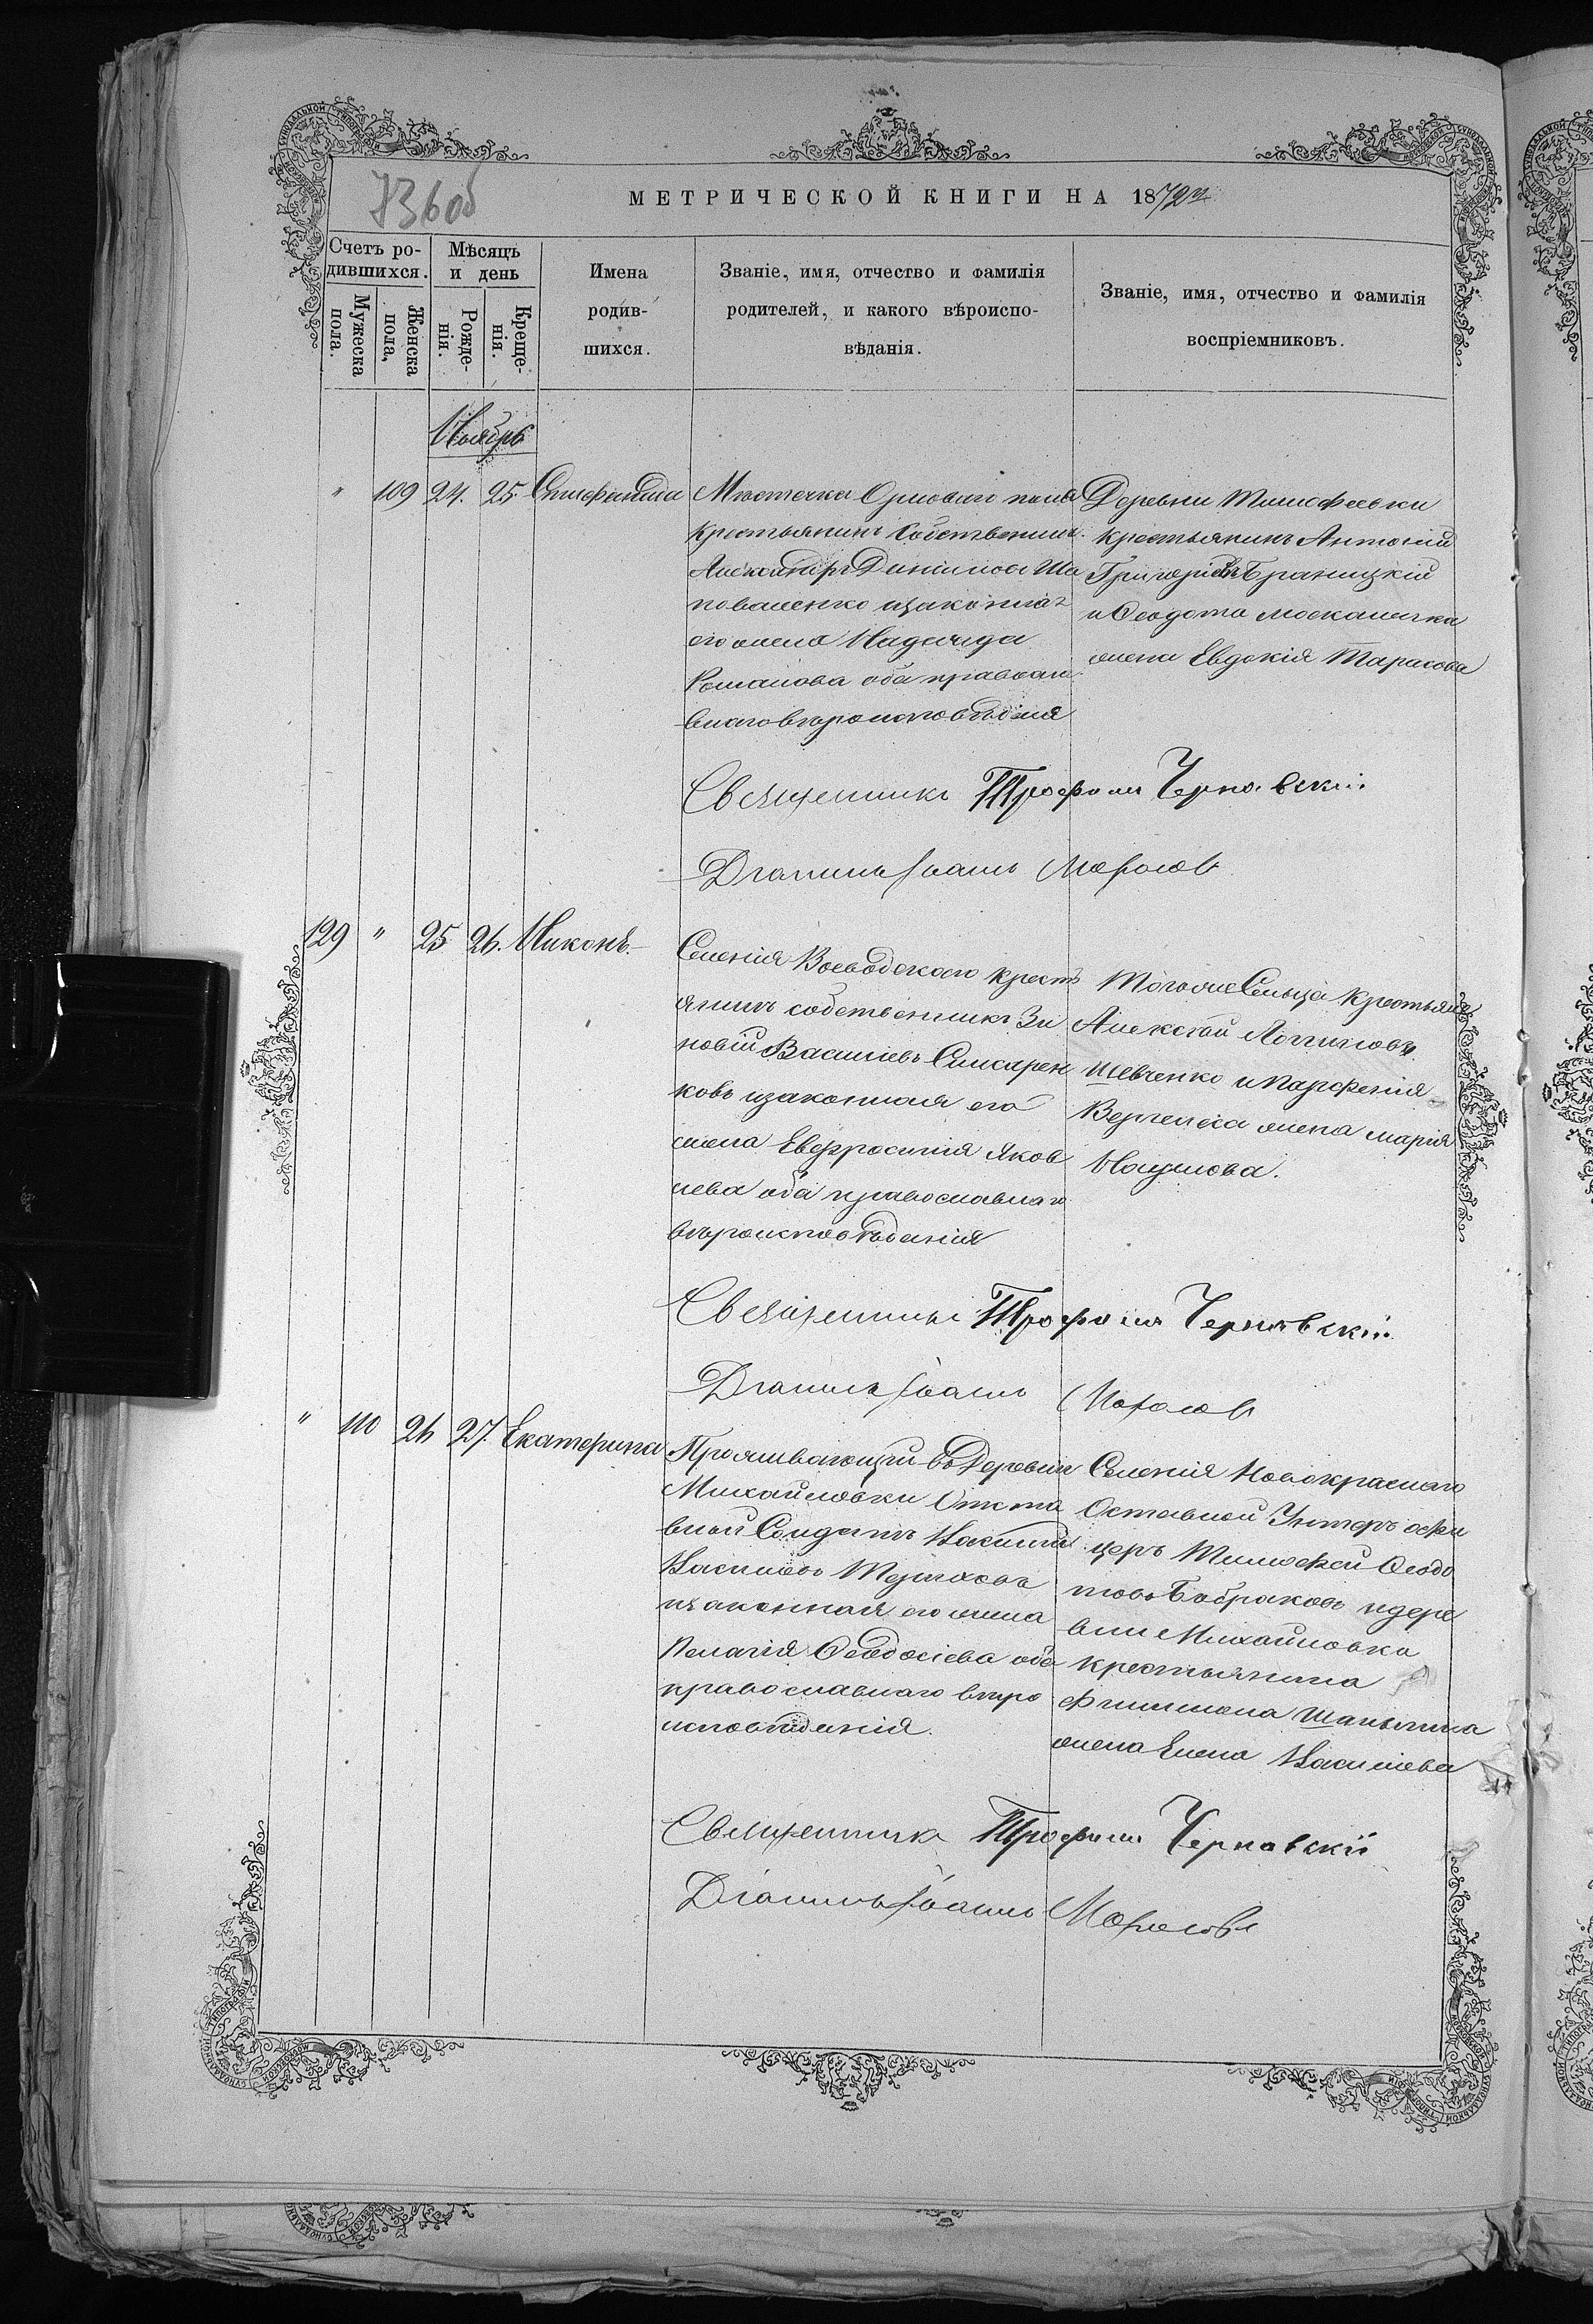 736 об
МЕТРИЧЕСКОЙ КНИГИ НА 1872й
Счетъ ро-
дившихся.
Мужеска
пола.
Женска
пола,
Мѣсяцъ
и день
Рожде-
нія.
Креще-
нія.
Имена
родив-
шихся.
Званіе, имя, отчество и фамилія
родителей, и какого вѣроиспо-
вѣданія.
Званіе, имя, отчество и фамилія
воспріемниковъ.
Ноябрь
" 109 24. 25. Епистимія
Мѣстечка
крестьянинъ собственникъ
Александръ Даніиловъ Ша
поваленко изаконная
его жена Надежда
Романова оба православ
внаго вѣроисповѣданія
Деревни Тимофеевки
крестьянинъ Антоній
Григоріевъ Браницкій
и Феодота москаленка
жена Евдокія Тарасова
Священникъ Трофимъ Черновскій
Діаконъ Іоаннъ Морозов
129 " 25 26. Никонъ.
Селенія Воеводскаго крестъ
янинъ собственникъ Зи
новій Васильевъ Слисарен
ковъ изаконная его
жена Евфросинія Яков
лева оба православнаго
вѣроисповѣданія
Тогоже Селенія крестьянинъ
Алексѣй Логиновъ
Шевченко и Парфенія
жена марія
Наумова.
Священникъ Трофимъ Черновскій
Діаконъ Іоаннъ Морозов
" 110 26 27. Екатерина
Проживающій въ Деревни
Михайловки Отста
вной Солдатъ Василій
Васильевъ
изаконная его жена
Пелагія Феодосіева оба
православнаго вѣро
исповѣданія.
Селенія Новокраснаго
Отставной Унтеръ офи
церъ Тимофей Феодо
товъ Бобраковъ идере
вни Михайловка
крестьянина
Филимона
жена Елена Васильева
Священникъ Трофимъ Черновскій
Діаконъ Іоаннъ Морозовъ